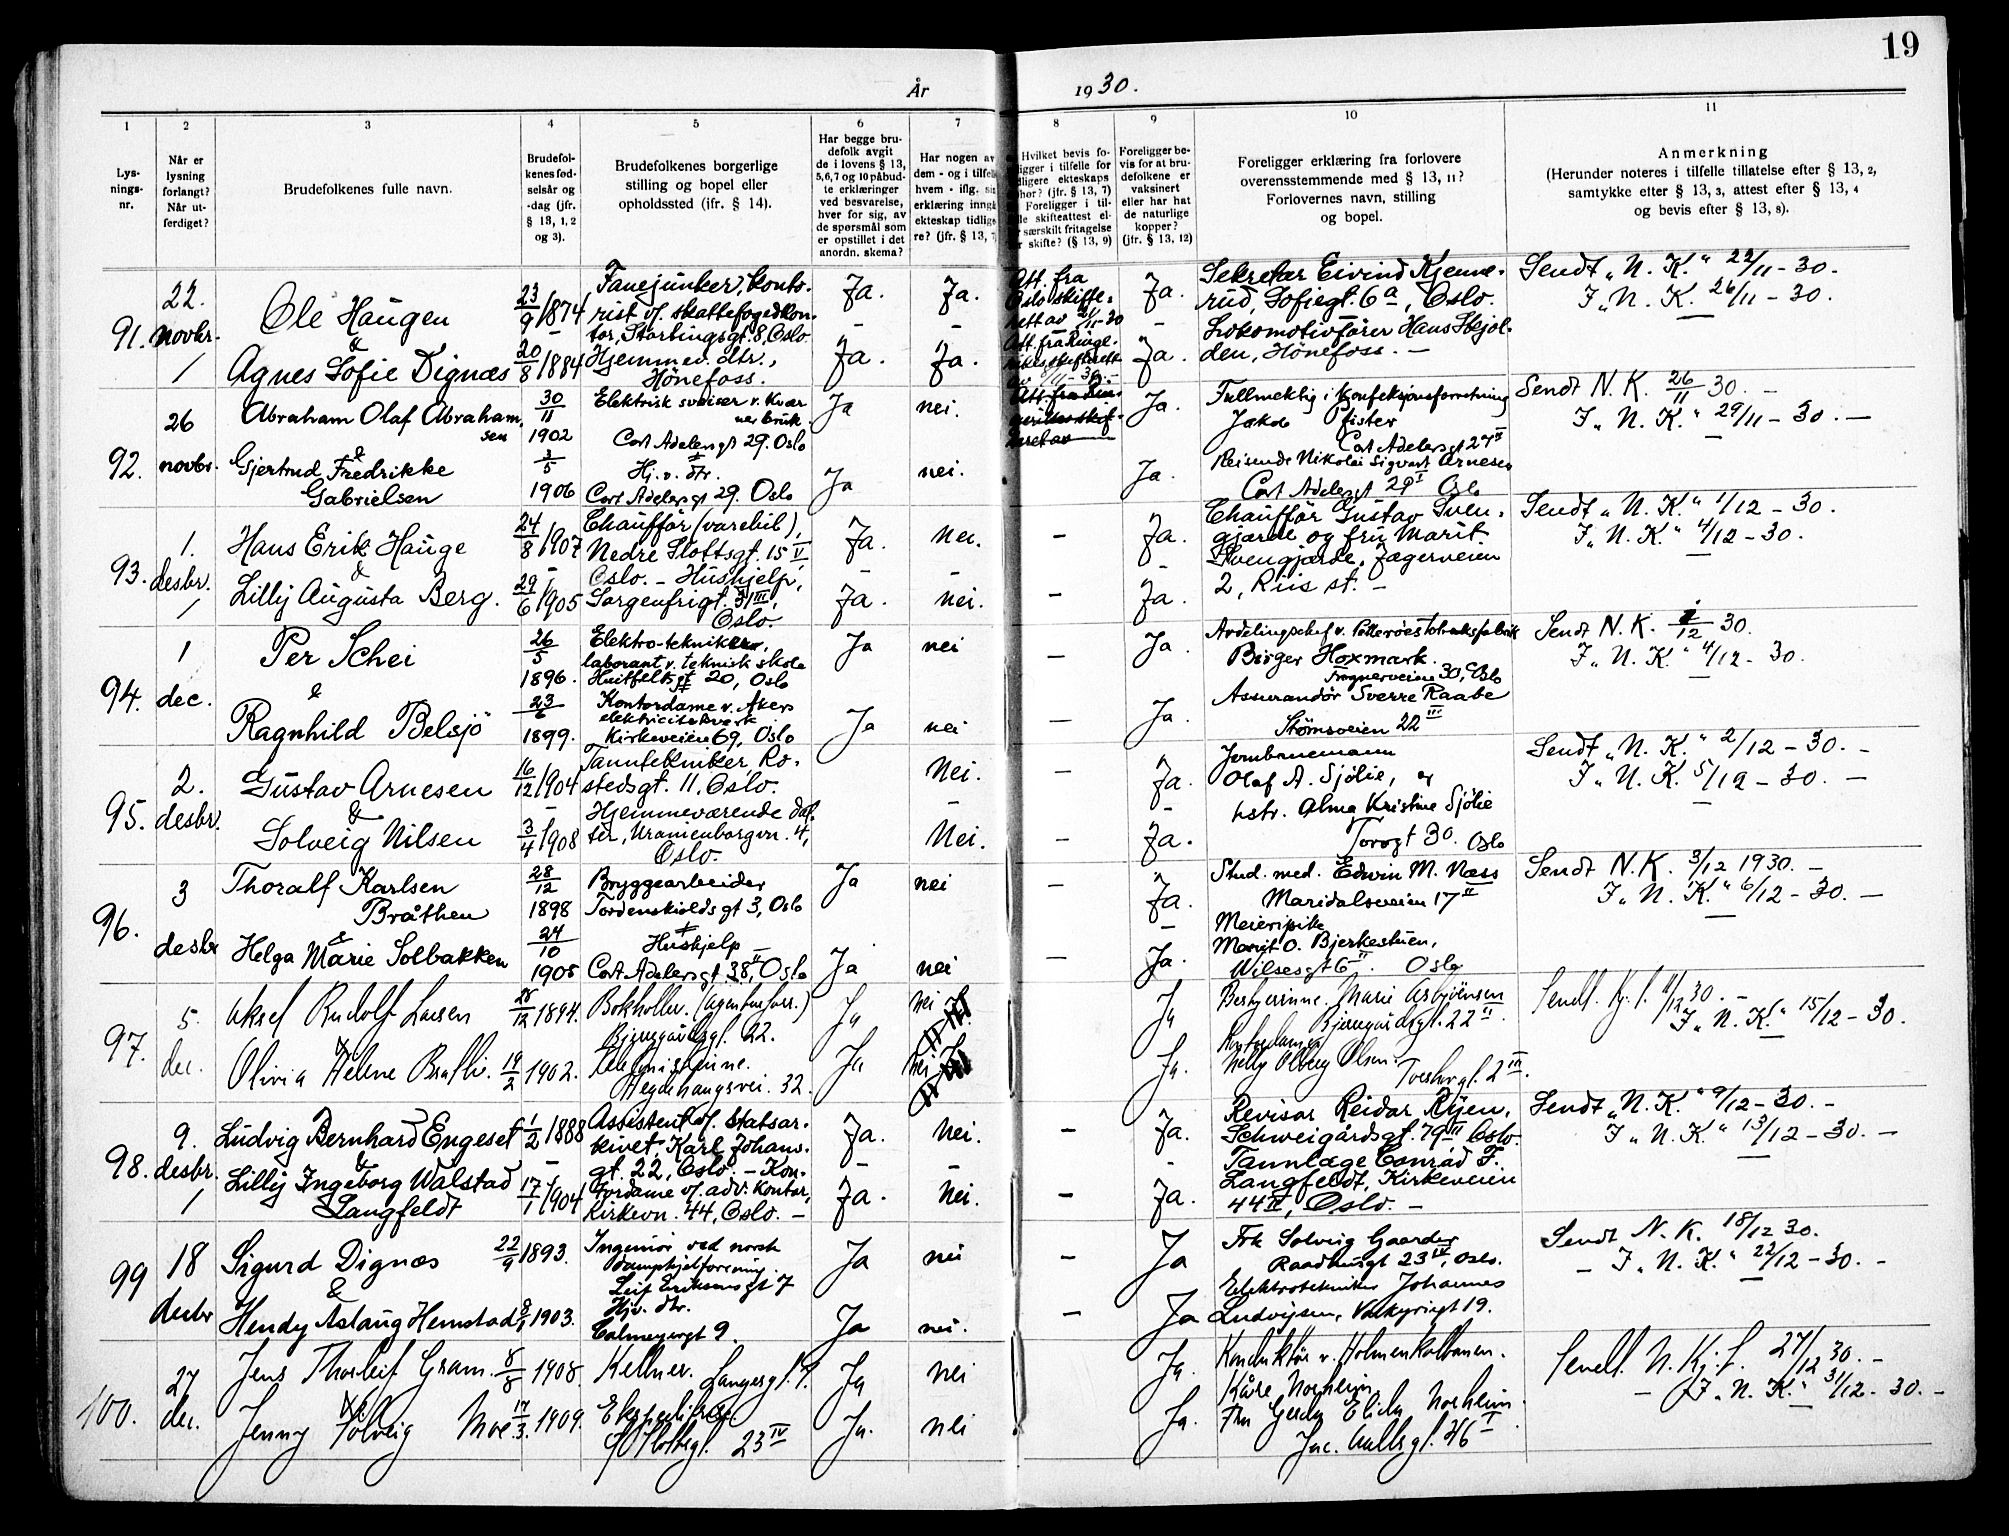 19
År 1930.
1
2
3
4
5
6
7
8
9
10
11
Lys-
nings-
nr.
Når er
lysning
forlangt?
Når ut-
ferdiget?
Brudefolkenes fulle navn.
Brudefol-
kenes fød-
selsår og
-dag (jfr.
§ 13, 1, 2
og 3).
Brudefolkenes borgerlige
stilling og bopel eller
opholdssted (ifr. § 14).
Har begge bru-
defolk avgit
de i lovens § 13,
5,6,7 og 10 påbud-
te erklæringer
ved besvarelse,
hver for sig, av
de spørsmål som
er opstillet i det
anordn. skema?
Har nogen av
dem - og i tilfelle
hvem - iflg. sin
erklæring inngå
ekteskap tidlige
re? (jfr. § 13, 7
Hvilket bevis fo-
ligger i tilfelle for
dligere ekteskaps
phør? (jfr. § 13, 7)
Foreligger i til-
lle skifteattest el-
særskilt fritagelse
skifte? (§ 13, 9)
Foreligger be-
vis for at bru-
defolkene er
vaksinert
eller har hat
de naturlige
kopper?
(jfr. § 13, 12)
Foreligger erklæring fra forlovere
overensstemmende med § 13, 11?
Forlovernes navn, stilling
og bopel.
Anmerkning
(Herunder noteres i tilfelle tillatelse efter § 13, 2,
samtykke efter § 13, 3, attest efter § 13, 4
og bevis efter § 13, 8).
91.
22.
novbr.
Ole Haugen
&
Agnes Sofie Dignæs
23/9 1874
20/8 1884
Fanejunker, konto-
rist v/. skattefogedkon-
tor, Stortingsgt. 8, Oslo.
Hjemmev. dtr.,
Hönefoss.
Ja.
Ja.
Ja.
Ja.
Att. fra
Oslo skifte-
rett av 21/11-30
Att. fra Ringe-
rikes skifterett
av 8/11-30.
Ja.
Ja.
Sekretær Eivind Kjenne-
rud, Sofiegt. 6a, Oslo.
Lokomotivfører Hans Skjol-
den, Hönefoss. —
Sendt „N. K." 22/11-30.
I „N. K." 26/11-30.
92.
26
novbr.
Abraham Olaf Abraham
sen
&
Gjertrud Fredrikke
Gabrielsen
30/11
1902
3/5
1906
Elektrisk sveiser v. Kvær
ner bruk
Cort Adelersgt 29. Oslo
&
Hj. v. dtr.
Cort Adelersgt 29. Oslo
Ja
Ja
nei.
nei.
Ja.
Ja.
Fullmektig i Konfeksjonsforretning
Jakob Pfister
Cort Adelersgt 27 II
Reisende Nikolai Sigvart Arnesen
Cort Adelersgt 29 I Oslo
Sendt N. K. 26/11 30. —
I „N. K." 29/11-30. —
93.
1.
desbr.
Hans Erik Hauge
&
Lilly Augusta Berg.
24/8 1907
29/6 1905
Chaufför (varebil),
Nedre Slottsgt. 15 V
Oslo. — Hushjelp,
Sorgenfrigt. 31 III,
Oslo.
Ja.
Ja.
Nei.
Nei.
Ja.
Ja.
Chaufför Gustav Sven-
gjærde og fru Marit
Svengjærde, Jægerveien
2, Riis st. —
Sendt „N. K." 1/12-30.
I „N. K." 4/12-30.
94.
1
dec.
Per Schei
&
Ragnhild Belsjö
26/5
1896.
23/6
1899.
Elektro-tekniker,
laborant v. teknisk skole
Huitfeldtsgt 20, Oslo
&
Kontordame v. Akers
elektricitetsverk
Kirkeveien 69, Oslo
Ja
Ja
nei
nei
Ja.
Ja.
Avdelingschef v. Petterøes tobaksfabrik
Birger Hoxmark.
Frognerveien 30, Oslo
Assurandør Sverre Raabe
Strømsveien 22 III
Sendt N. K. 1/12 30.
I „N. K." 4/12-30.
95.
2.
desbr.
Gustav Arnesen
&
Solveig Nilsen
16/12 1904
3/4 1908
Tanntekniker Ro-
stedsgt. 11, Oslo.
Hjemmeværende dat-
ter, Uranienborgvn. 4,
Oslo.
Nei.
Nei.
Ja.
Ja.
Jernbanemann
Olaf A. Sjölie, og
hstr. Alma Kristine Sjölie
Torvgt 30. Oslo
Sendt „N. K." 2/12-30. —
I „N. K. 5/12-30. —
96.
3
desbr
Thoralf Karlsen
Bråthen
&
Helga Marie Solbakken
28/12
1898
24/10
1905
Bryggearbeider
Tordenskiolds gt 3, Oslo
&
Hushjelp
Cort Adelersgt 38, II Oslo
Ja
Ja
nei
nei
Ja.
Ja.
Stud. med. Edwin M. Næss
Maridalsveien 17 II
Meieripike
Marit O. Bjerkestuen,
Wilsesgt 6 II. Oslo
Sendt N. K. 3/12 1930. —
I „N. K." 6/12-30. —
97.
5.
dec.
Aksel Rudolf Larsen
&
Olivia Helene Bratlie.
28/12 1894.
19/2 1902.
Bokholder. (Agenturforr.)
Bjerregaardsgt. 22.
Telefonistinne.
Heydehaugsvei. 32.
Ja
Ja
nei
nei
Ja
Ja.
Bestyerinne. Marie Asbjörnsen
Bjerregårdsgt. 22 II.
Kontordame
Nelly Olberg Olsen. Toesbrgt. 2 III.
Sendt. Kj. f. 11/12 30. —
I „N. K." 15/12-30.
98.
9.
desbr.
Ludvig Bernhard Engeset
&
Lilly Ingeborg Walstad
Langfeldt
1/2 1888
17/1 1904
Assistent v/. statsar-
kivet, Karl Johans-
gt. 22, Oslo. — Kon-
tordame v/. adv. kontor,
Kirkevn. 44, Oslo. —
Ja.
Ja.
Nei.
Nei.
Ja.
Ja.
Revisor Reidar Ryen,
Schweigårdsgt. 79 II Oslo.
Tannlæge Conrad F.
Langfeldt, Kirkeveien
44 IV, Oslo. —
Sendt „N. K." 9/12-30. —
I „N. K." 13/12-30. —
99
18
desbr
Sigurd Dignæs
&
Hendy Aslaug Hemstad
22/9 1893.
8/1 1903.
Ingeniør ved norsk
dampkjelforening.
Leif Eriksonsgt 7
Hjv. dtr.
Calmeyersgt 9.
Ja
Ja
nei
nei.
Ja
Ja
Frk Solveig Gaarder
Raadhusgt 23 IV, Oslo.
Elektrotekniker Johannes
Ludvigsen, Valkyriegt 19.
Sendt N. K. 18/12 30.
— I „N. K." 22/12-30. —
100.
27
dec.
Jens Thorleif Gram.
&
Jenny Solveig Moe.
8/8 1908.
17/3 1909.
Kellner. Langesgt. 17.
Ekspeditrise
Slottsgt. 23 IV
Ja
Ja.
nei
nei
Ja
Ja.
Konduktör v. Holmenkolbanen.
Kåre Norheim
Fru Gerda Elida Norheim.
Jac. Aallsgt. 46 I
Sendt. N. Kj. f. 27/12 30. —
— I „N. K." 31/12-30. —